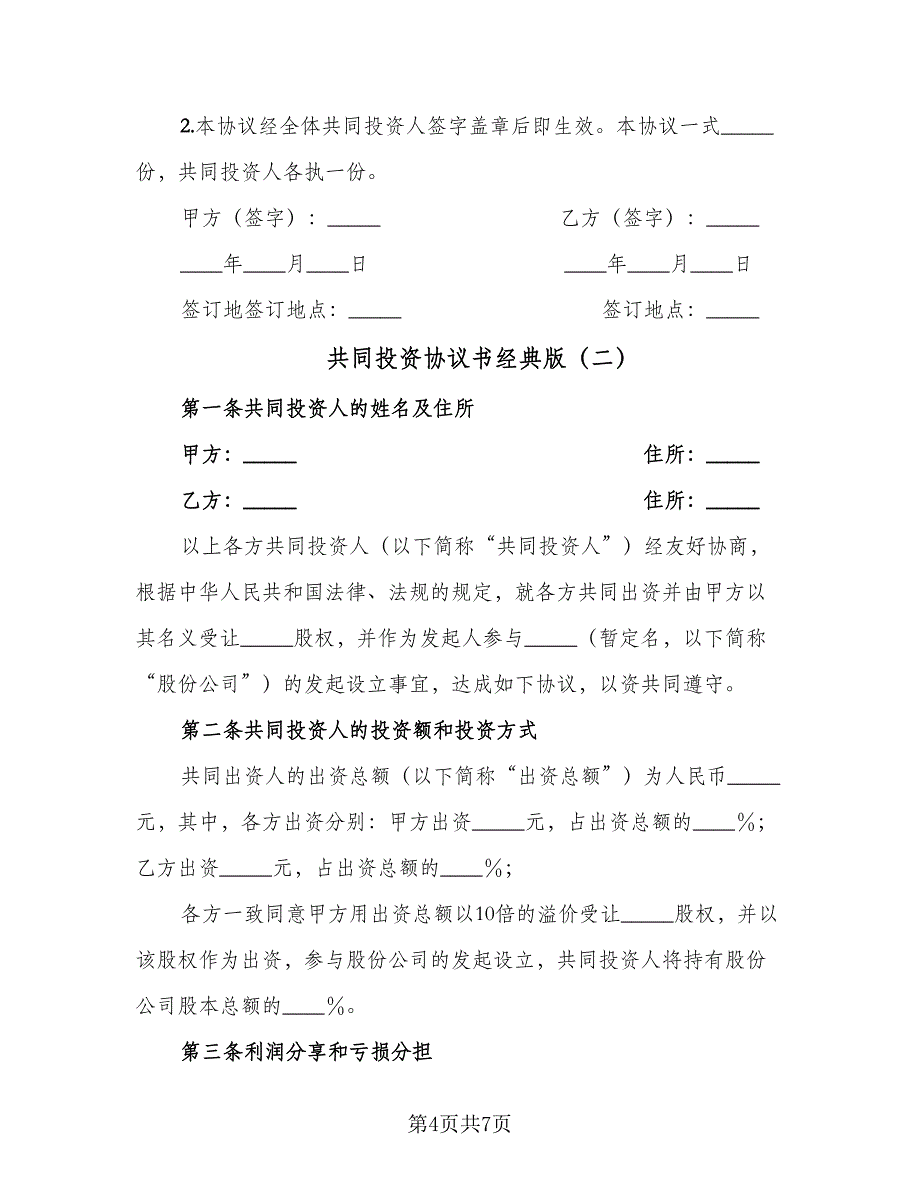 2.本协议经全体共同投资人签字盖章后即生效。本协议一式_____
份，共同投资人各执一份。
甲方（签字）：_____ 乙方（签字）：_____
____年____月____日 ____年____月____日
签订地签订地点：_____ 签订地点：_____
共同投资协议书经典版（二）
第一条共同投资人的姓名及住所
甲方：_____ 住所：_____
乙方：_____ 住所：_____
以上各方共同投资人（以下简称“共同投资人”）经友好协商，
根据中华人民共和国法律、法规的规定，就各方共同出资并由甲方以
其名义受让_____股权，并作为发起人参与_____（暂定名，以下简称
“股份公司”）的发起设立事宜，达成如下协议，以资共同遵守。
第二条共同投资人的投资额和投资方式
共同出资人的出资总额（以下简称“出资总额”）为人民币_____
元，其中，各方出资分别：甲方出资_____元，占出资总额的____％；
乙方出资_____元，占出资总额的____％；
各方一致同意甲方用出资总额以10倍的溢价受让_____股权，并以
该股权作为出资，参与股份公司的发起设立，共同投资人将持有股份
公司股本总额的____％。
第三条利润分享和亏损分担
第4页共7页